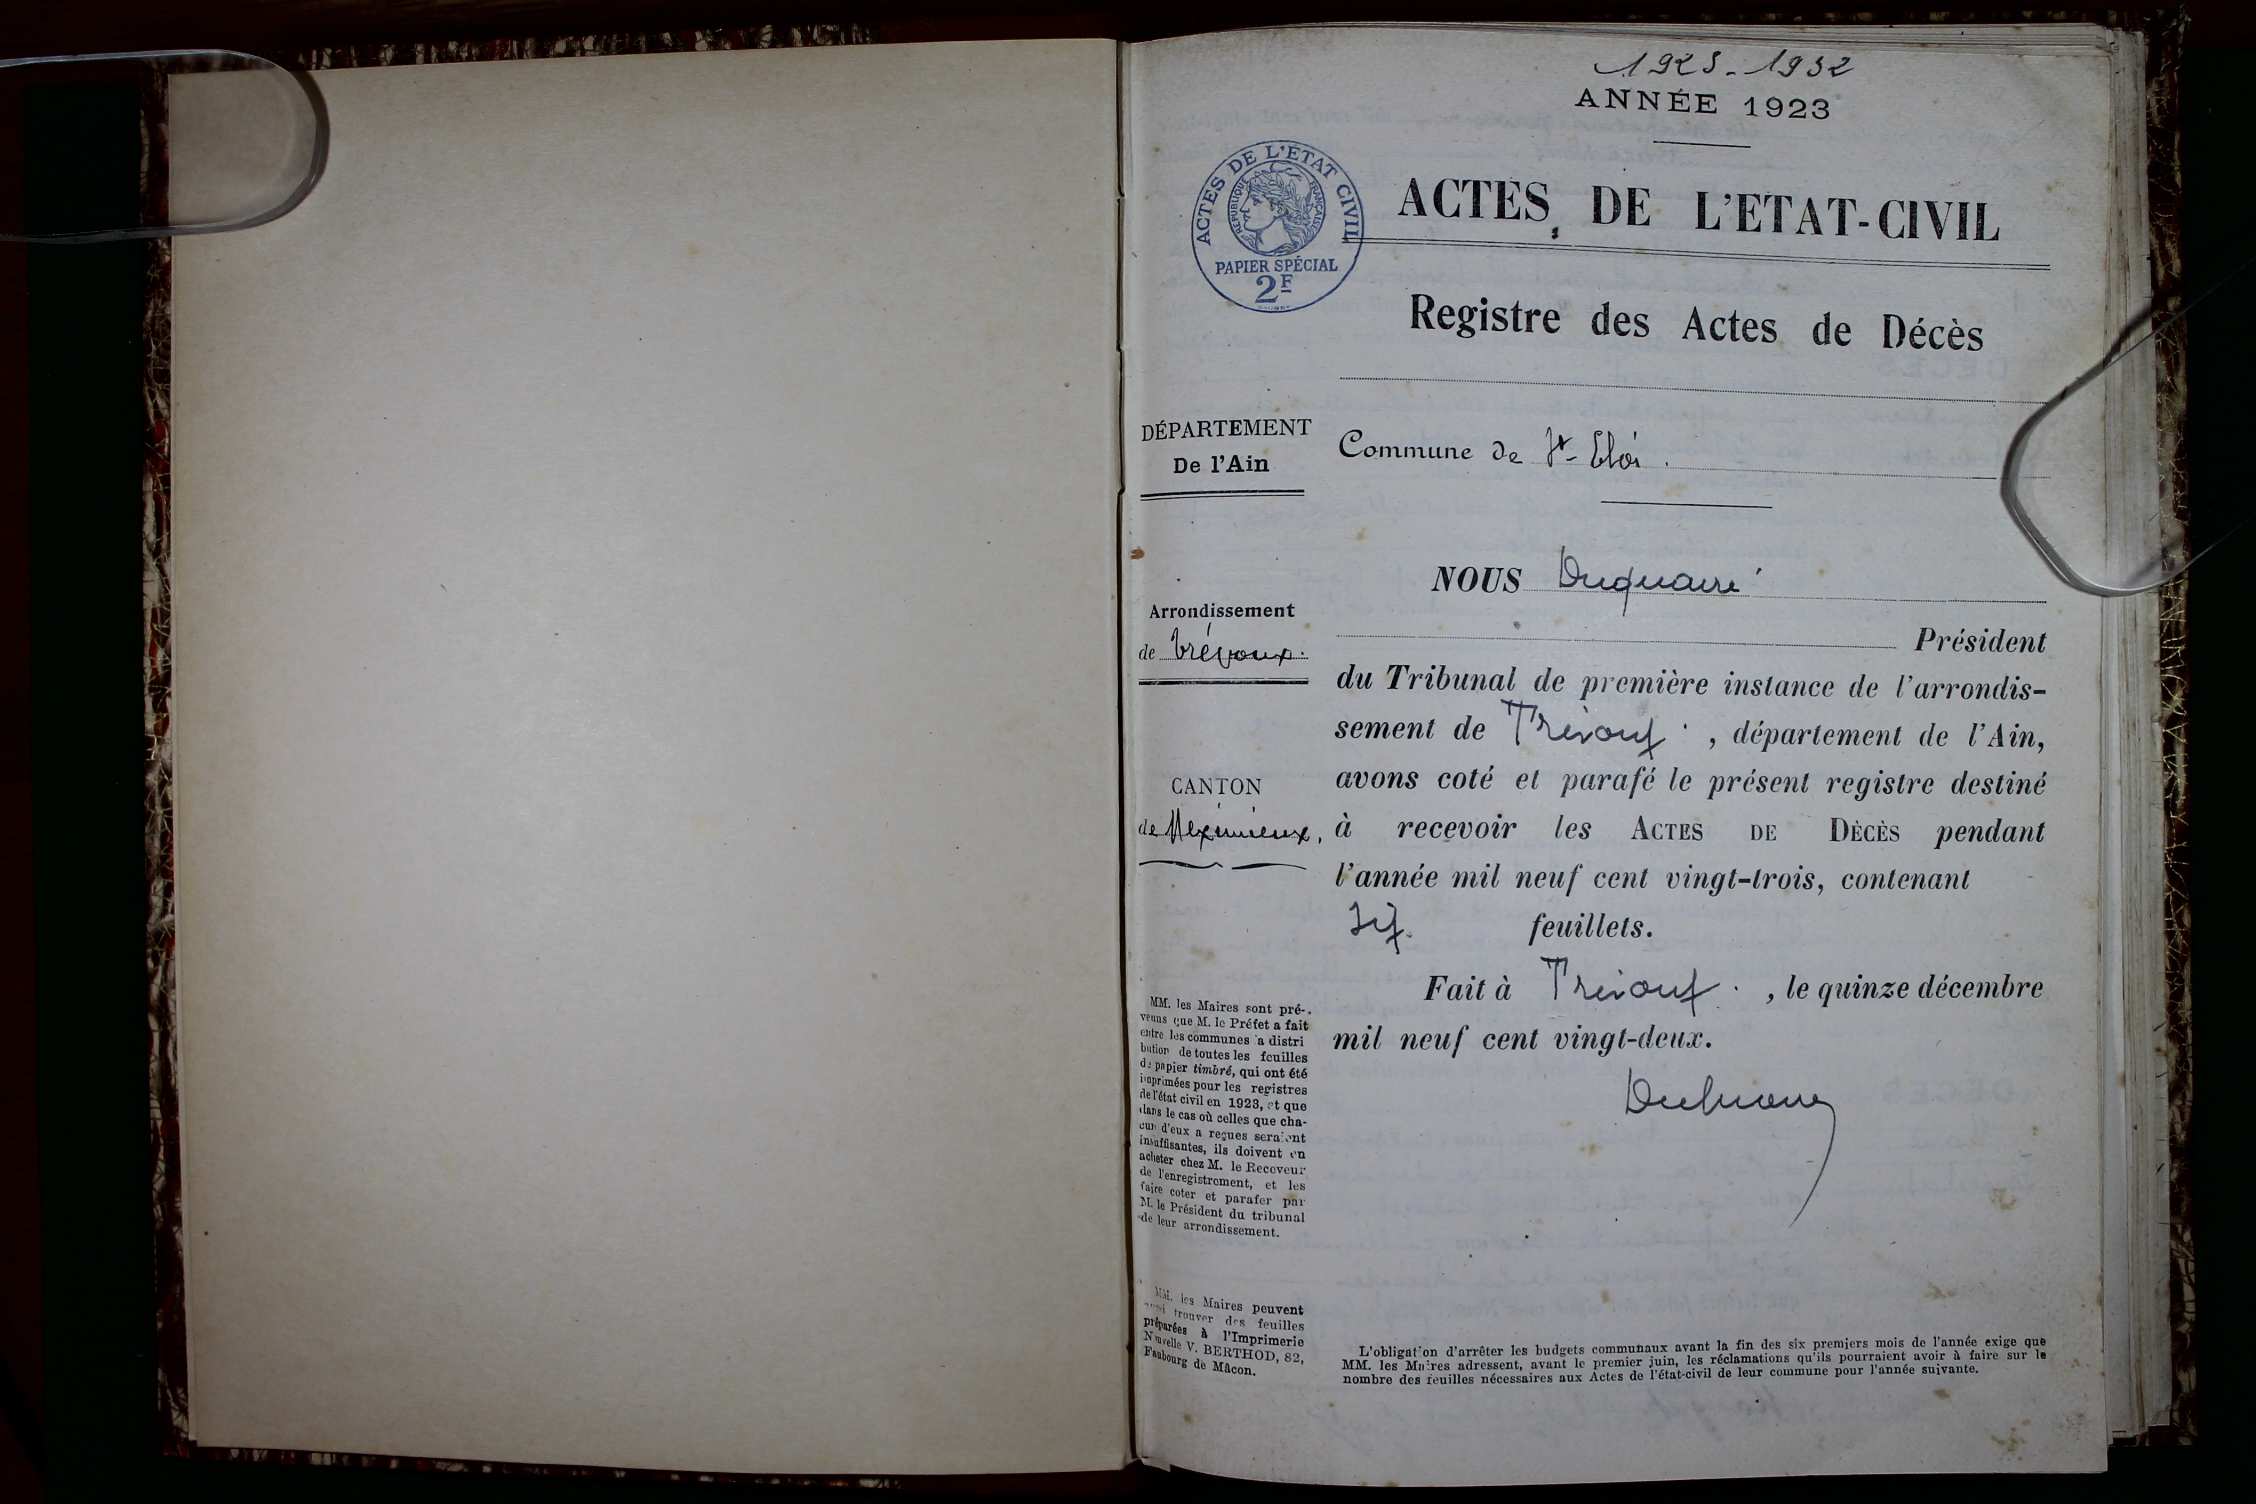 1923-1932
ANNÉE 1923
ACTES DE L'ÉTAT CIVIL
RÉPUBLIQUE FRANÇAISE
PAPIER SPÉCIAL
2F
ACTES DE L'ETAT-CIVIL
Registre des Actes de Décès
DÉPARTEMENT
De l'Ain
Commune de St-Eloi.
Arrondissement
de Trévoux.
CANTON
de Meximieux,
NOUS Duquaire
Président
du Tribunal de première instance de l'arrondis-
sement de Trévoux, département de l'Ain,
avons coté et parafé le présent registre destiné
à recevoir les ACTES DE DÉCÈS pendant
l'année mil neuf cent vingt-trois, contenant
six feuillets.
Fait à Trévoux, le quinze décembre
mil neuf cent vingt-deux.
MM. les Maires sont pré-
venus que M. le Préfet a fait
entre les communes a distri
bution de toutes les feuilles
de papier timbré, qui ont été
imprimées pour les registres
de l'état civil en 1923, et que
dans le cas où celles que cha-
cun d'eux a reçues seraient
insuffisantes, ils doivent en
acheter chez M. le Receveur
de l'enregistrement, et les
faire coter et parafer par
M. le Président du tribunal
de leur arrondissement.
MM. les Maires peuvent
aussi trouver des feuilles
préparées à l'Imprimerie
Nouvelle V. BERTHOD, 82,
Faubourg de Mâcon.
L'obligation d'arrêter les budgets communaux avant la fin des six premiers mois de l'année exige que
MM. les Maires adressent, avant le premier juin, les réclamations qu'ils pourraient avoir à faire sur le
nombre des feuilles nécessaires aux Actes de l'état-civil de leur commune pour l'année suivante.